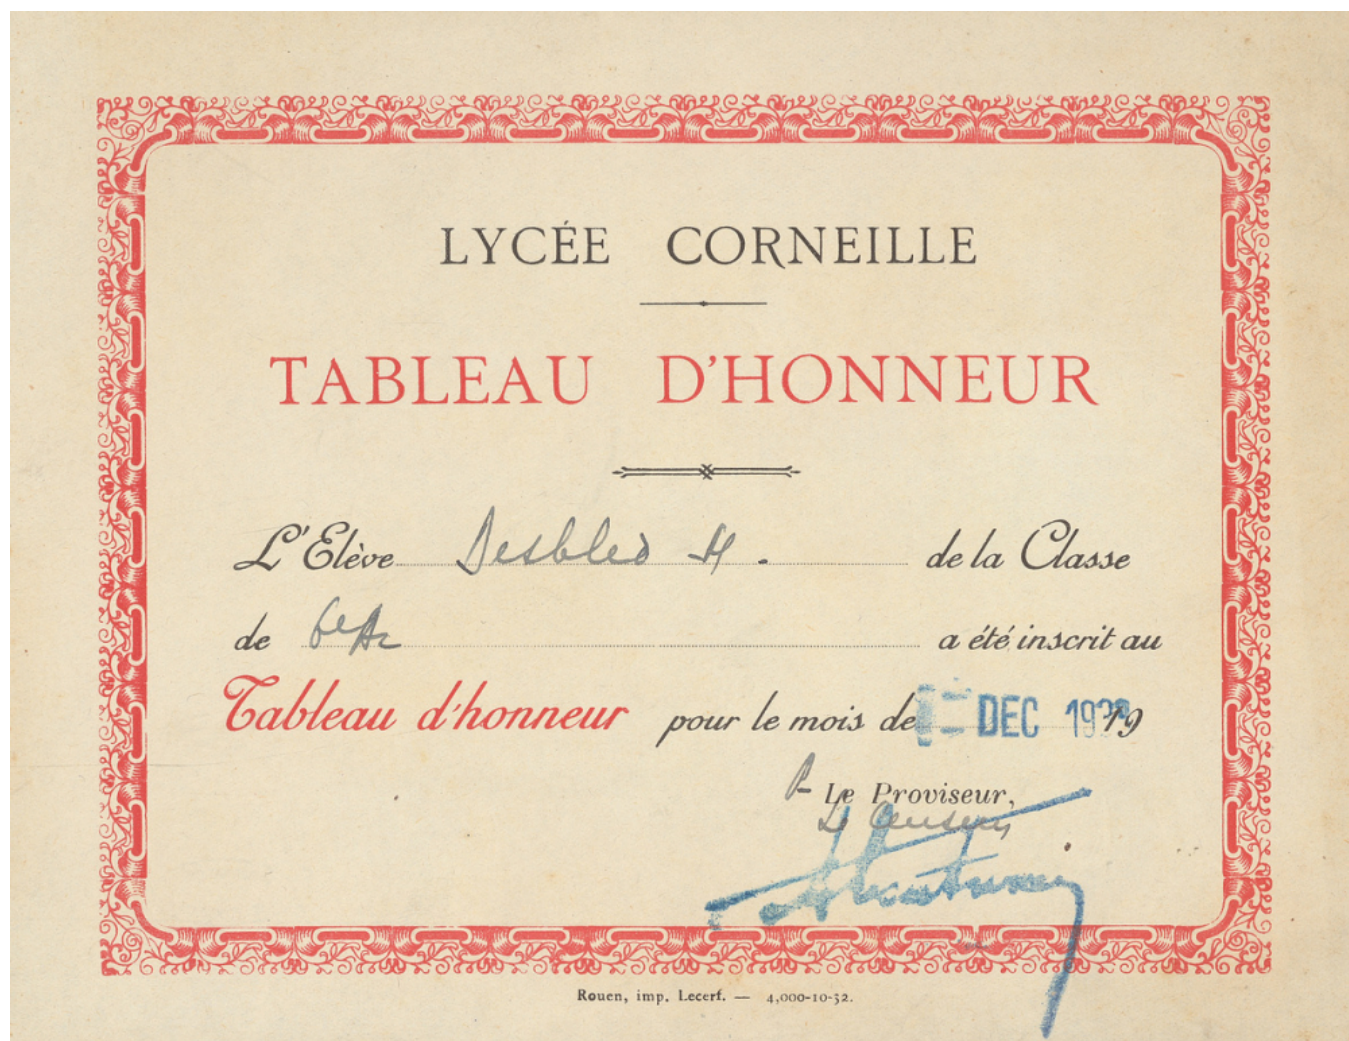 LYCÉE CORNEILLE
TABLEAU D'HONNEUR
L'Elève Desbled H. de la Classe
de 6eA2 a été inscrit au
Tableau d'honneur pour le mois de DEC 19
P. Le Proviseur,
Le Censeur
Rouen, imp. Lecerf. — 4,000-10-32.